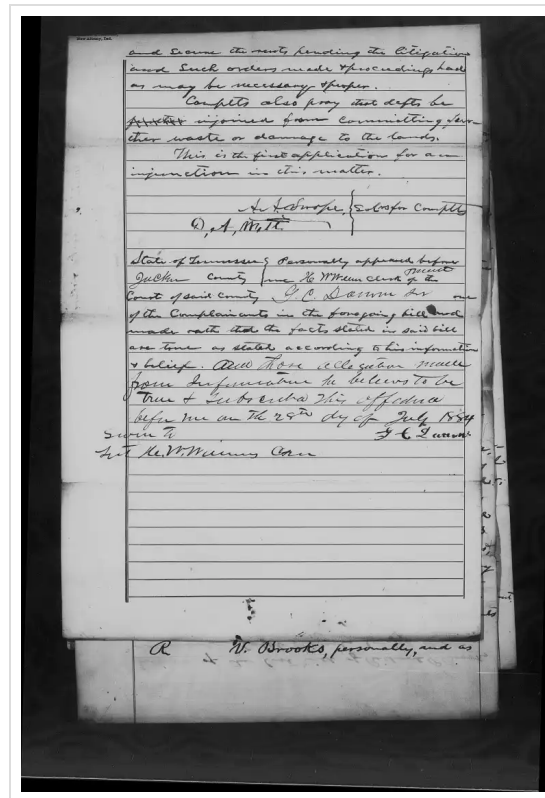 and secure the rents pending the litigation
and such orders made & proceedings had
as may be necessary & proper.
Complts also pray that defts be
injoined from committing fur-
ther waste or damage to the lands.
This is the first application for an
injunction in this matter.
Sols for Complts
D, A,
State of Tennessee Personally appeared before
County me H W Clerk of the
Court of said County G. C. one
of the Complainants in the foregoing bill and
made oath that the facts stated in said bill
are true as stated according to his information
& belief. And those allegation made
from Information he believs to be
true & this
before me on th 28th dy of July 1884
Sworn to
W.
R W. Brooks, personally, and as